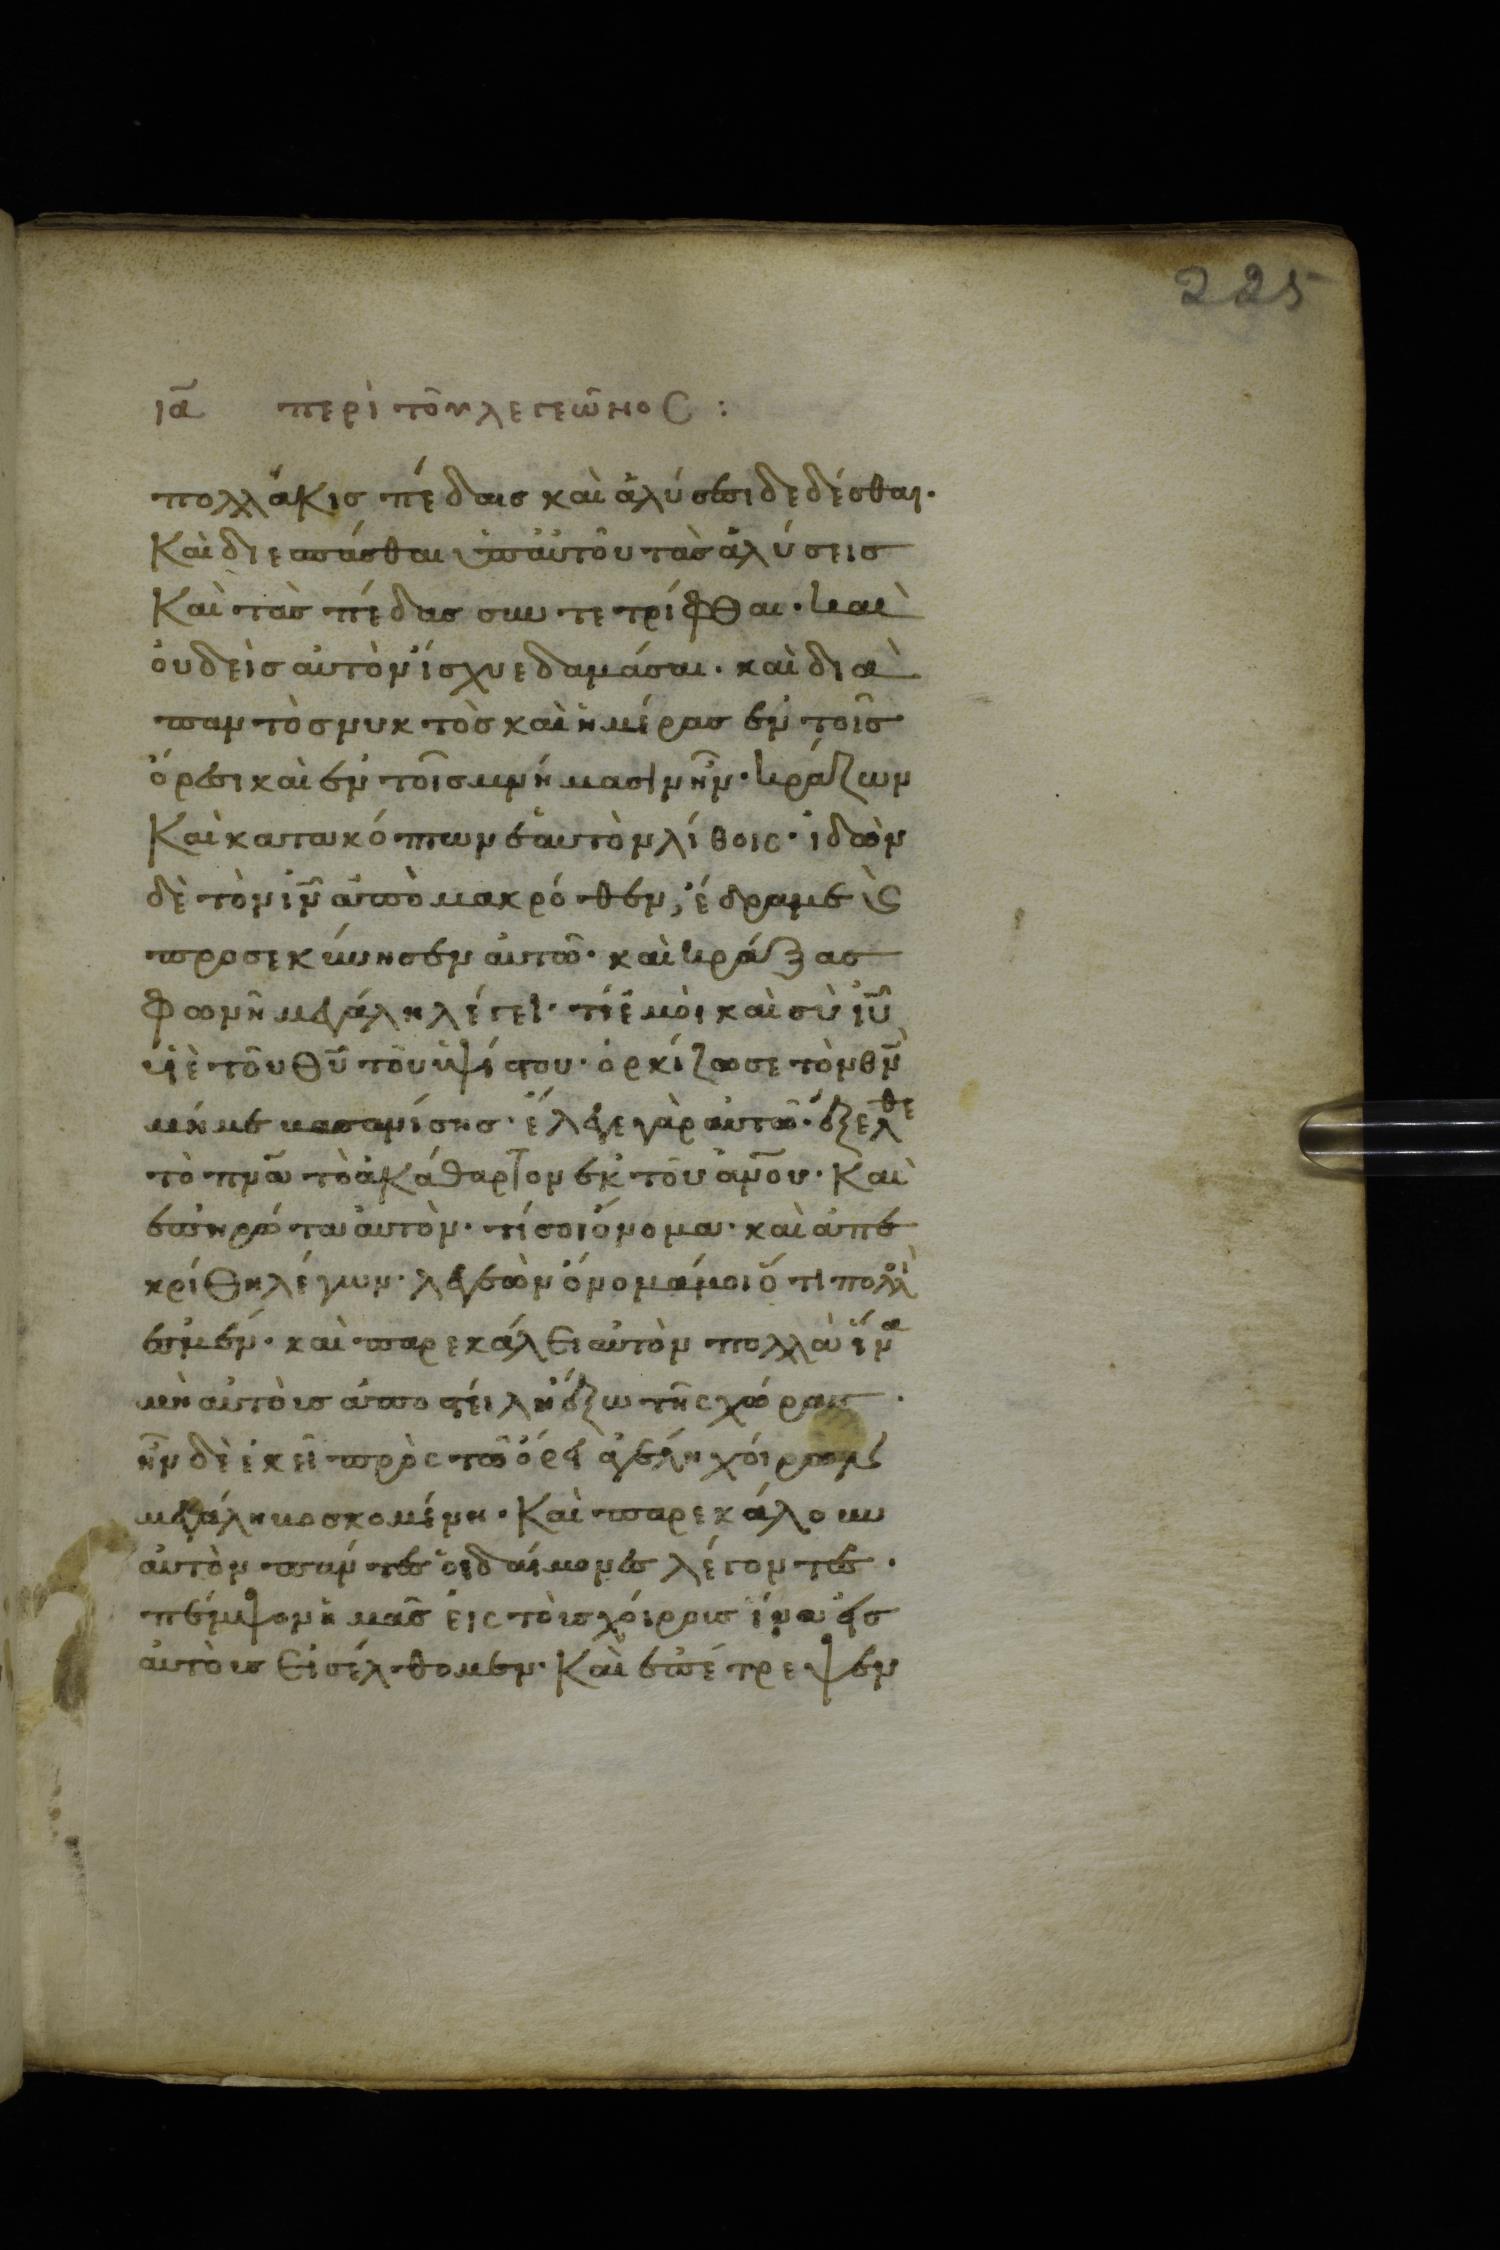 225
ια̅ περὶ τοῦ λεγεῶνος :
πολλάκις πέδαις καὶ ἁλύσεσι δεδέσθαι·
Καὶ διεσπάσθαι ὑπ αὐτοῦ τὰς ἁλύσεις
Καὶ τὰς πέδας συντετρίφθαι· καὶ
ὀυδεὶς αὐτὸν ἴσχυε δαμάσαι· καὶ δια
παντὸς νυκτὸς καὶ ἡμέρας ἐν τοῖς
ὄρεσι καὶ ἐν τοῖς μνήμασιν ἦν· κράζων
Καὶ κατακόπτων ἑαυτὸν λίθοις· ἰδὼν
δὲ τὸν ιν̅ ἀπὸ μακρόθεν, ἔδραμε ϗ
προσεκύνησεν αὐτῶ· καὶ κράξας
φωνῆ μεγάλη λέγει· τί ἐμὸι καὶ σὺ ιυ̅
υἱὲ τοῦ θυ̅ τοῦ ὑψίστου· ὁρκίζω σε τὸν θν̅
μή με βασανίσης· ἔλεγε γὰρ αὐτῶ· ἔξελθε
τὸ πνα̅ τὸ ἀκάθαρτον ἐκ τοῦ ἀνο̅υ· Καὶ
ἐπηρώτα αὐτὸν· τί σοι ὄνομα· καὶ ἀπε
κρίθη λέγων· λεγεὼν ὄνομά μοι ὅτι πολλὶ
ἐσμέν· καὶ παρεκάλει αὐτὸν πολλὰ ἵνα
μὴ αὐτὸυς ἀποστείλη ἔξω τῆς χώρας·
ἦν δὲ ἐκεῖ πρὸς τῶ ὄρει ἀγέλη χόιρων
μεγάλη βοσκομένη· Καὶ παρεκάλουν
αὐτὸν πάντες ὁι δαίμονες λέγοντες·
πέμψον ἡμᾶς ἐις τὸυς χόιρους ἵνα εἰς
αὐτὸυς εἰσέλθομεν· Καὶ ἐπέτρεψεν